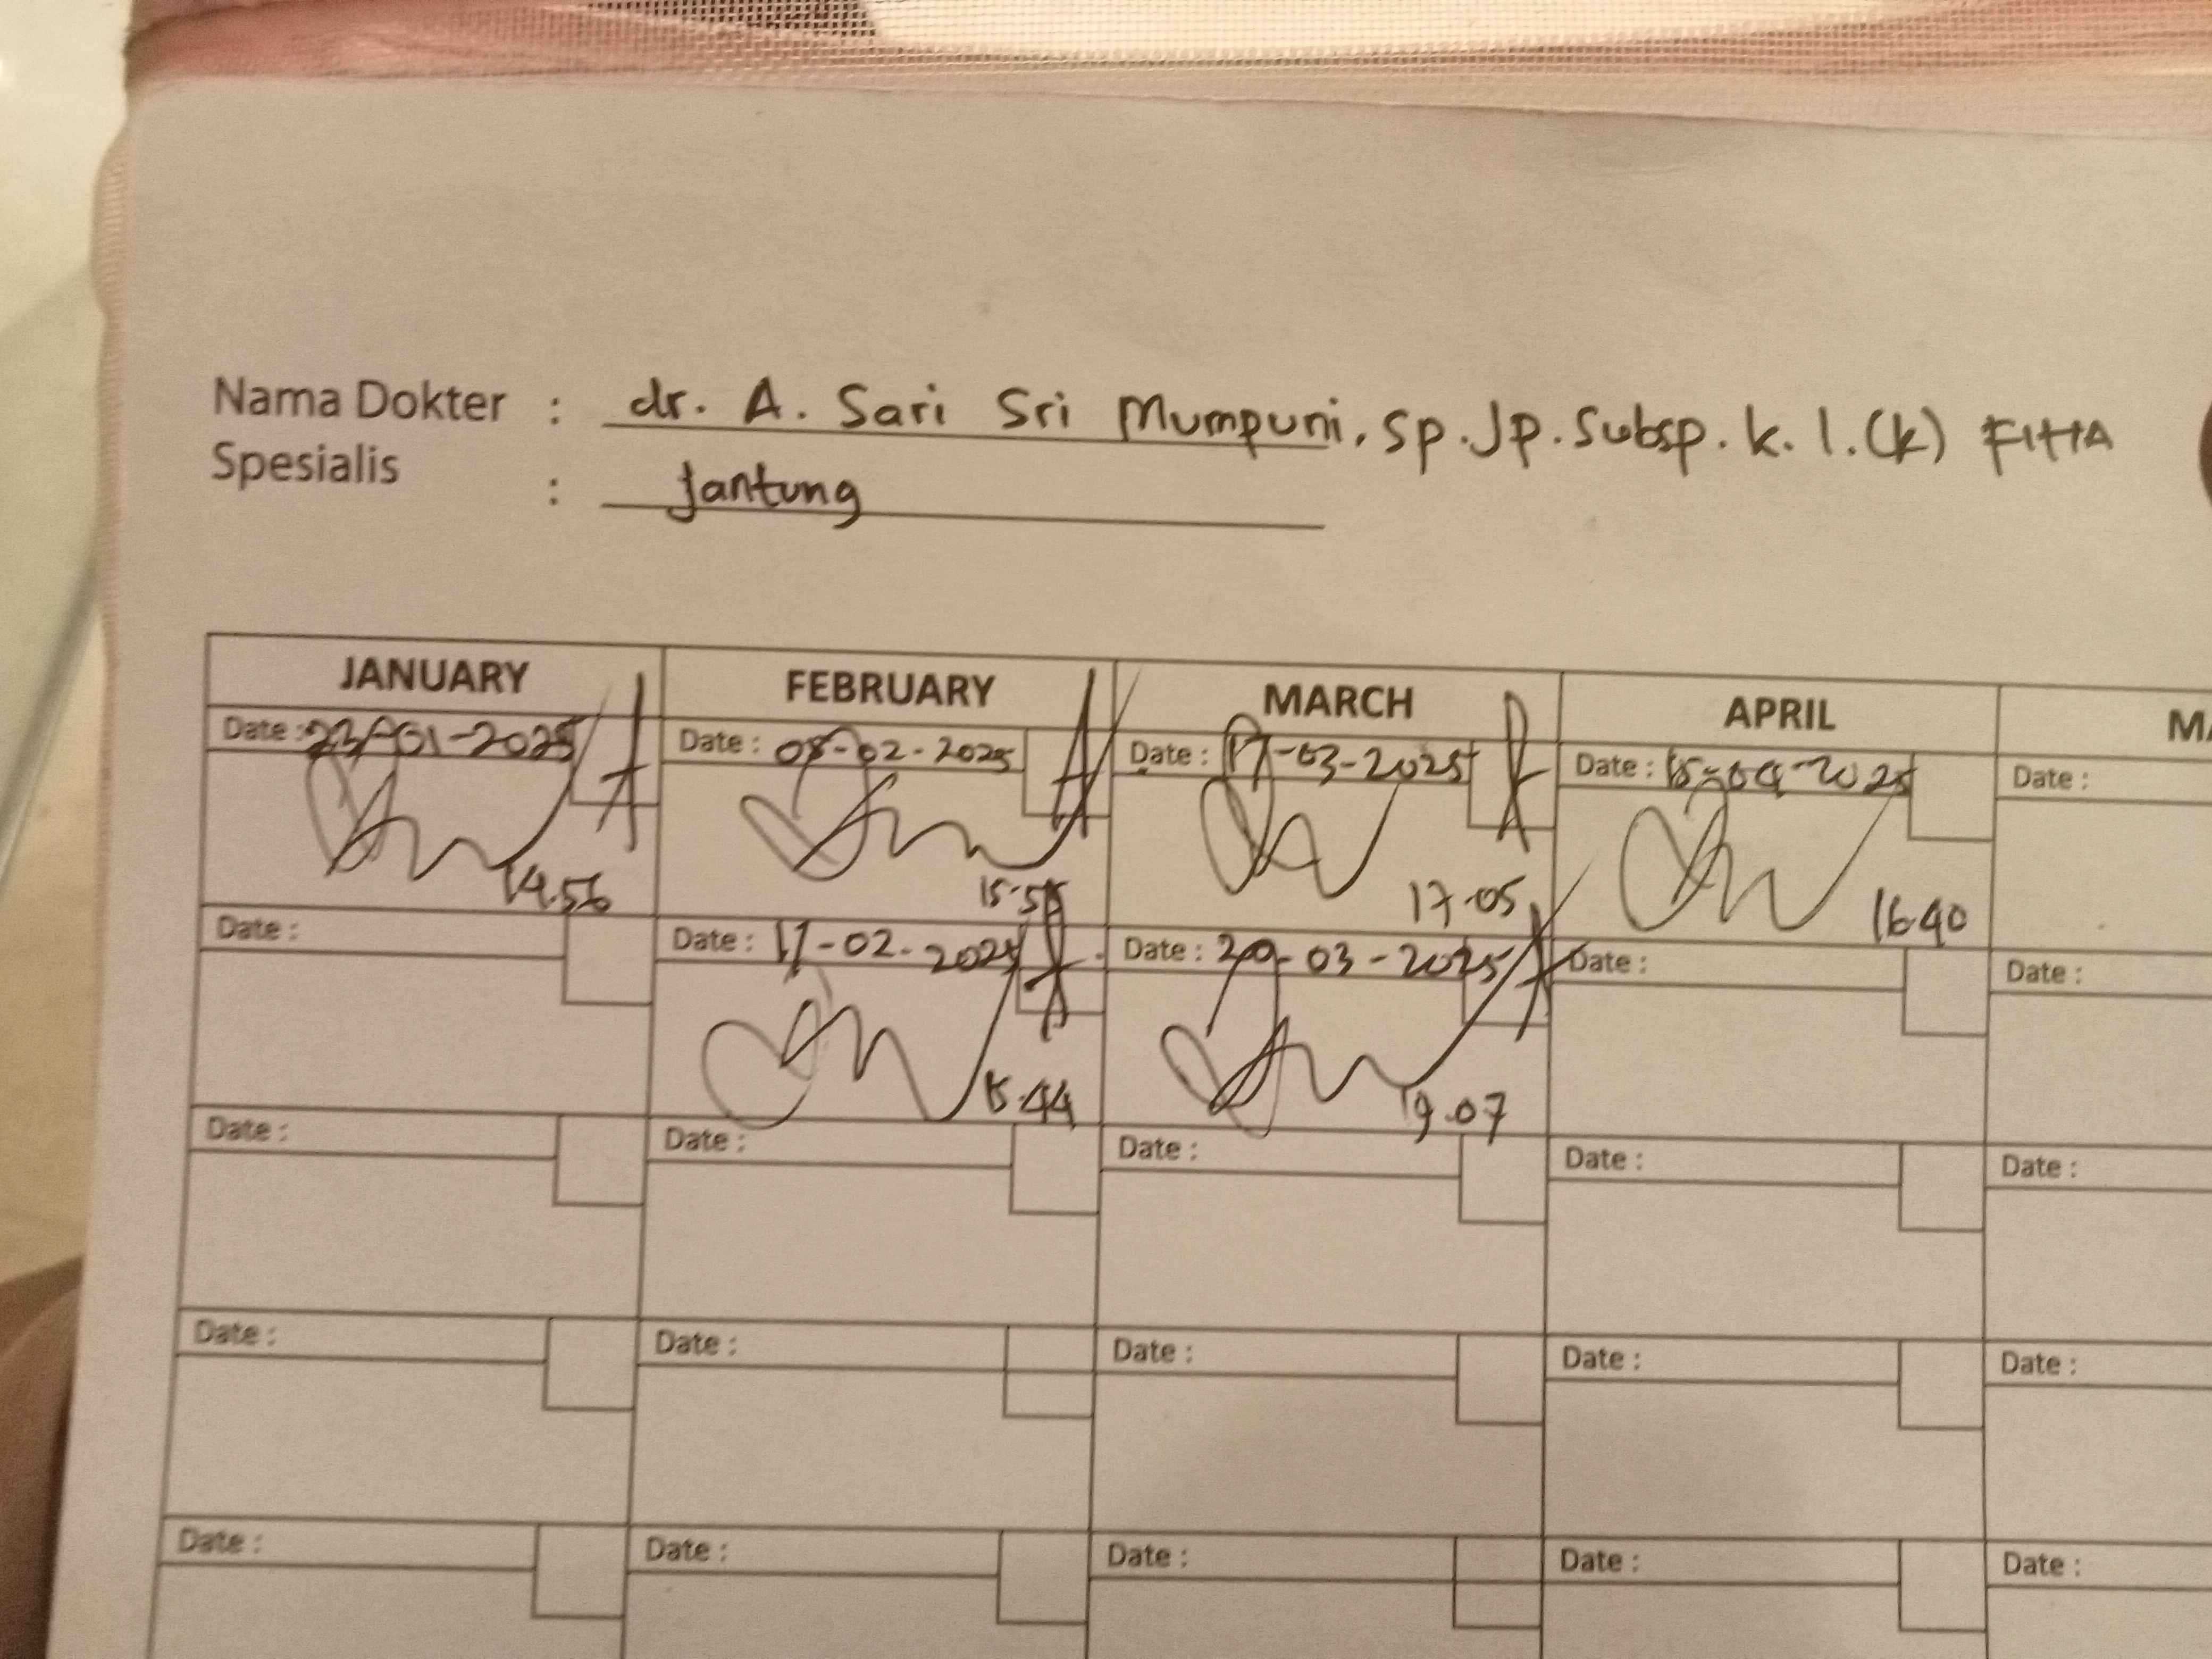 Nama Dokter : dr. A. Sari Sri Mumpuni, Sp.Jp.Subsp.k.l.(k) FIHA
Spesialis : Jantung
JANUARY FEBRUARY MARCH APRIL
Date : 23-01-2025 Date : 08-02-2025 Date : 17-03-2025 Date : 15-04-2025 Date :
14.56 15.55 17.05 16.40
Date : Date : 17-02-2025 Date : 20-03-2025 Date : Date :
15.44 19.07
Date : Date : Date : Date : Date :
Date : Date : Date : Date : Date :
Date : Date : Date : Date : Date :